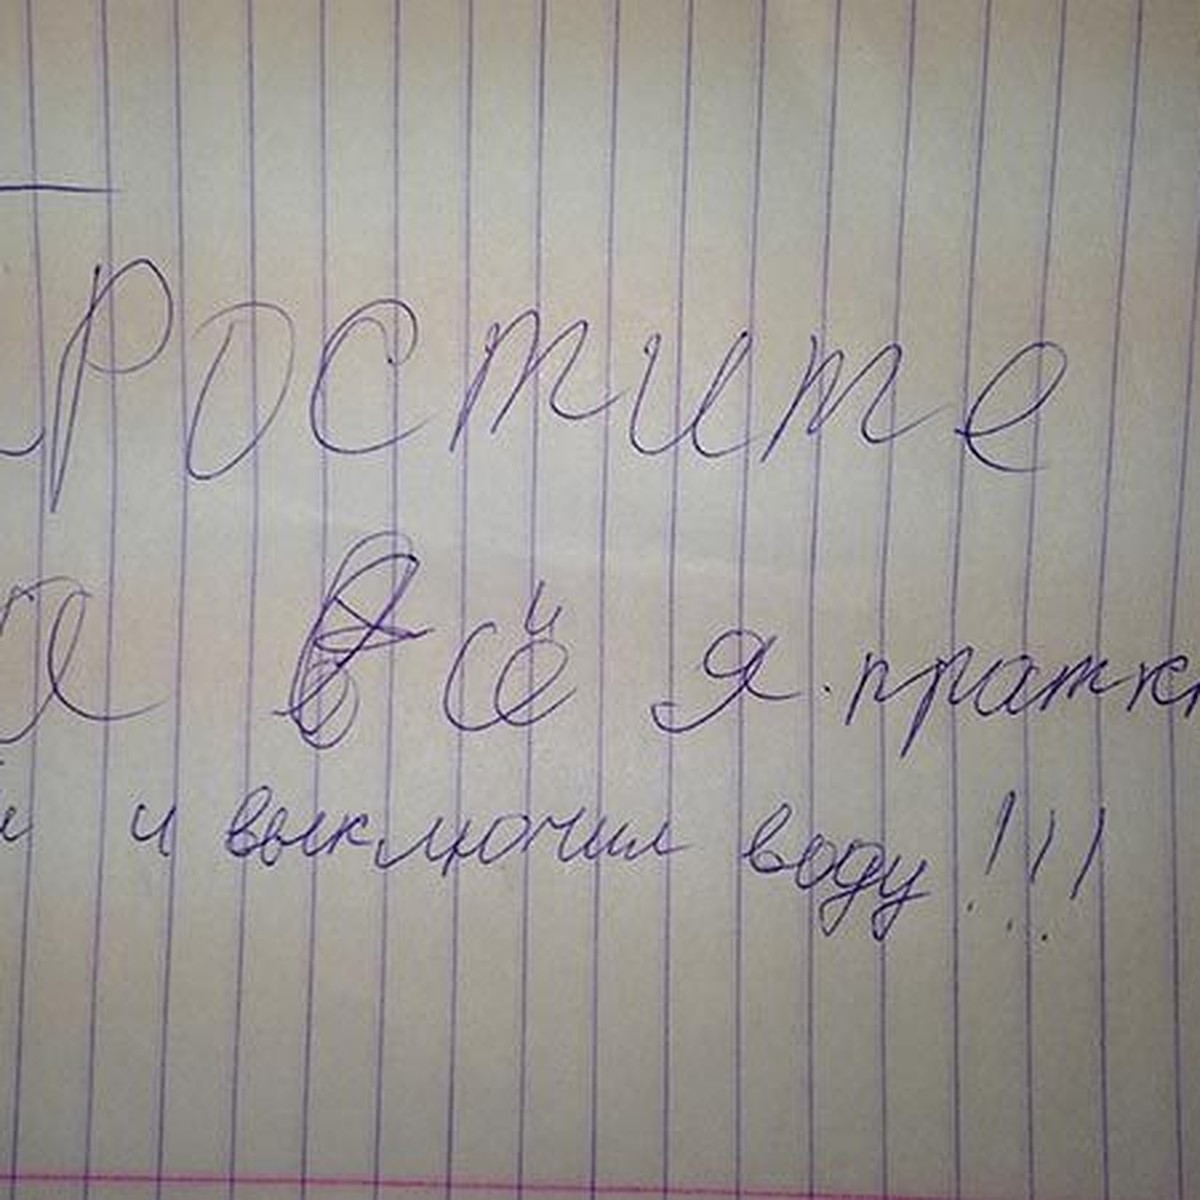 Простите
за всё я пратк
и выключил воду!!!